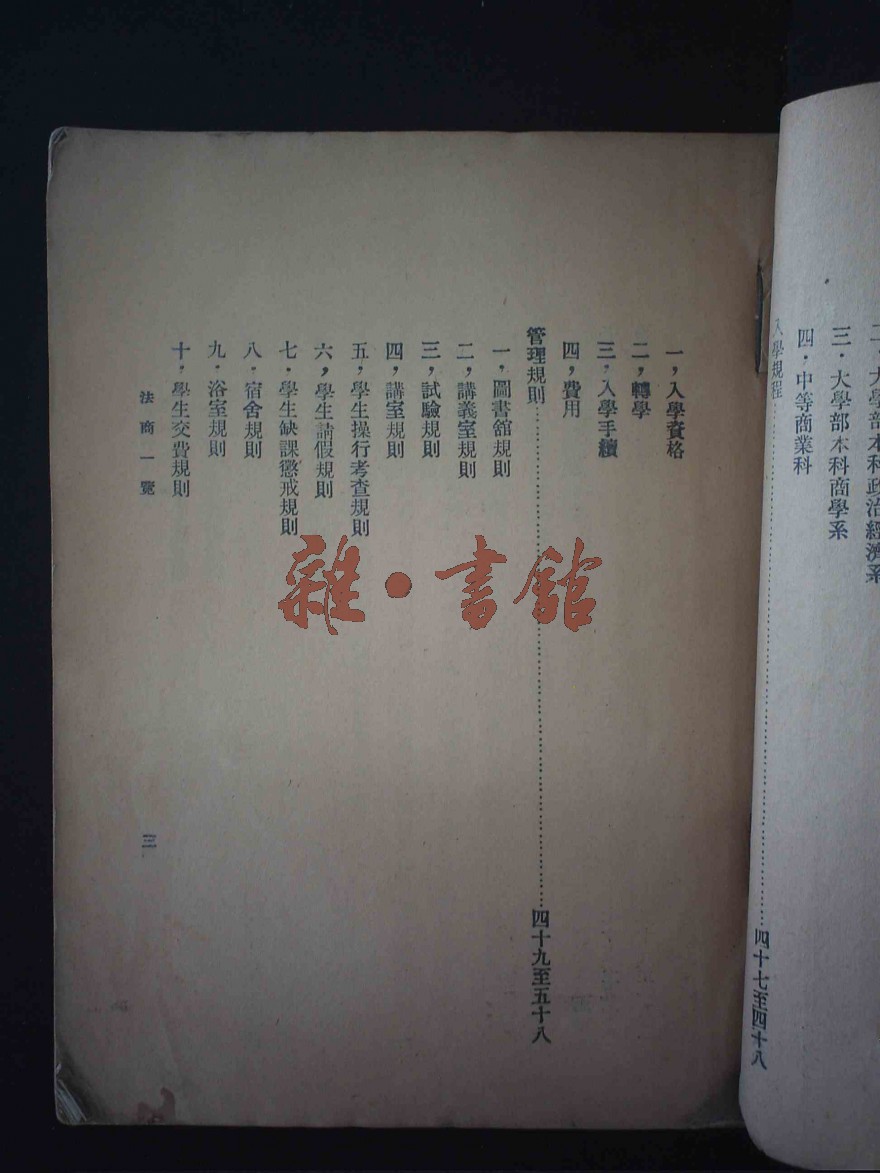 二．大學部本科政治經濟系
三．大學部本科商學系
四．中等商業科
入學規程……四十七至四十八
一，入學資格
二，轉學
三，入學手續
四，費用
管理規則……四十九至五十八
一，圖書舘規則
二，講義室規則
三，試驗規則
四，講室規則
五，學生操行考查規則
六，學生請假規則
七．學生缺課懲戒規則
八．宿舍規則
九．浴室規則
十．學生交費規則
法商一覽
三
雜·書舘